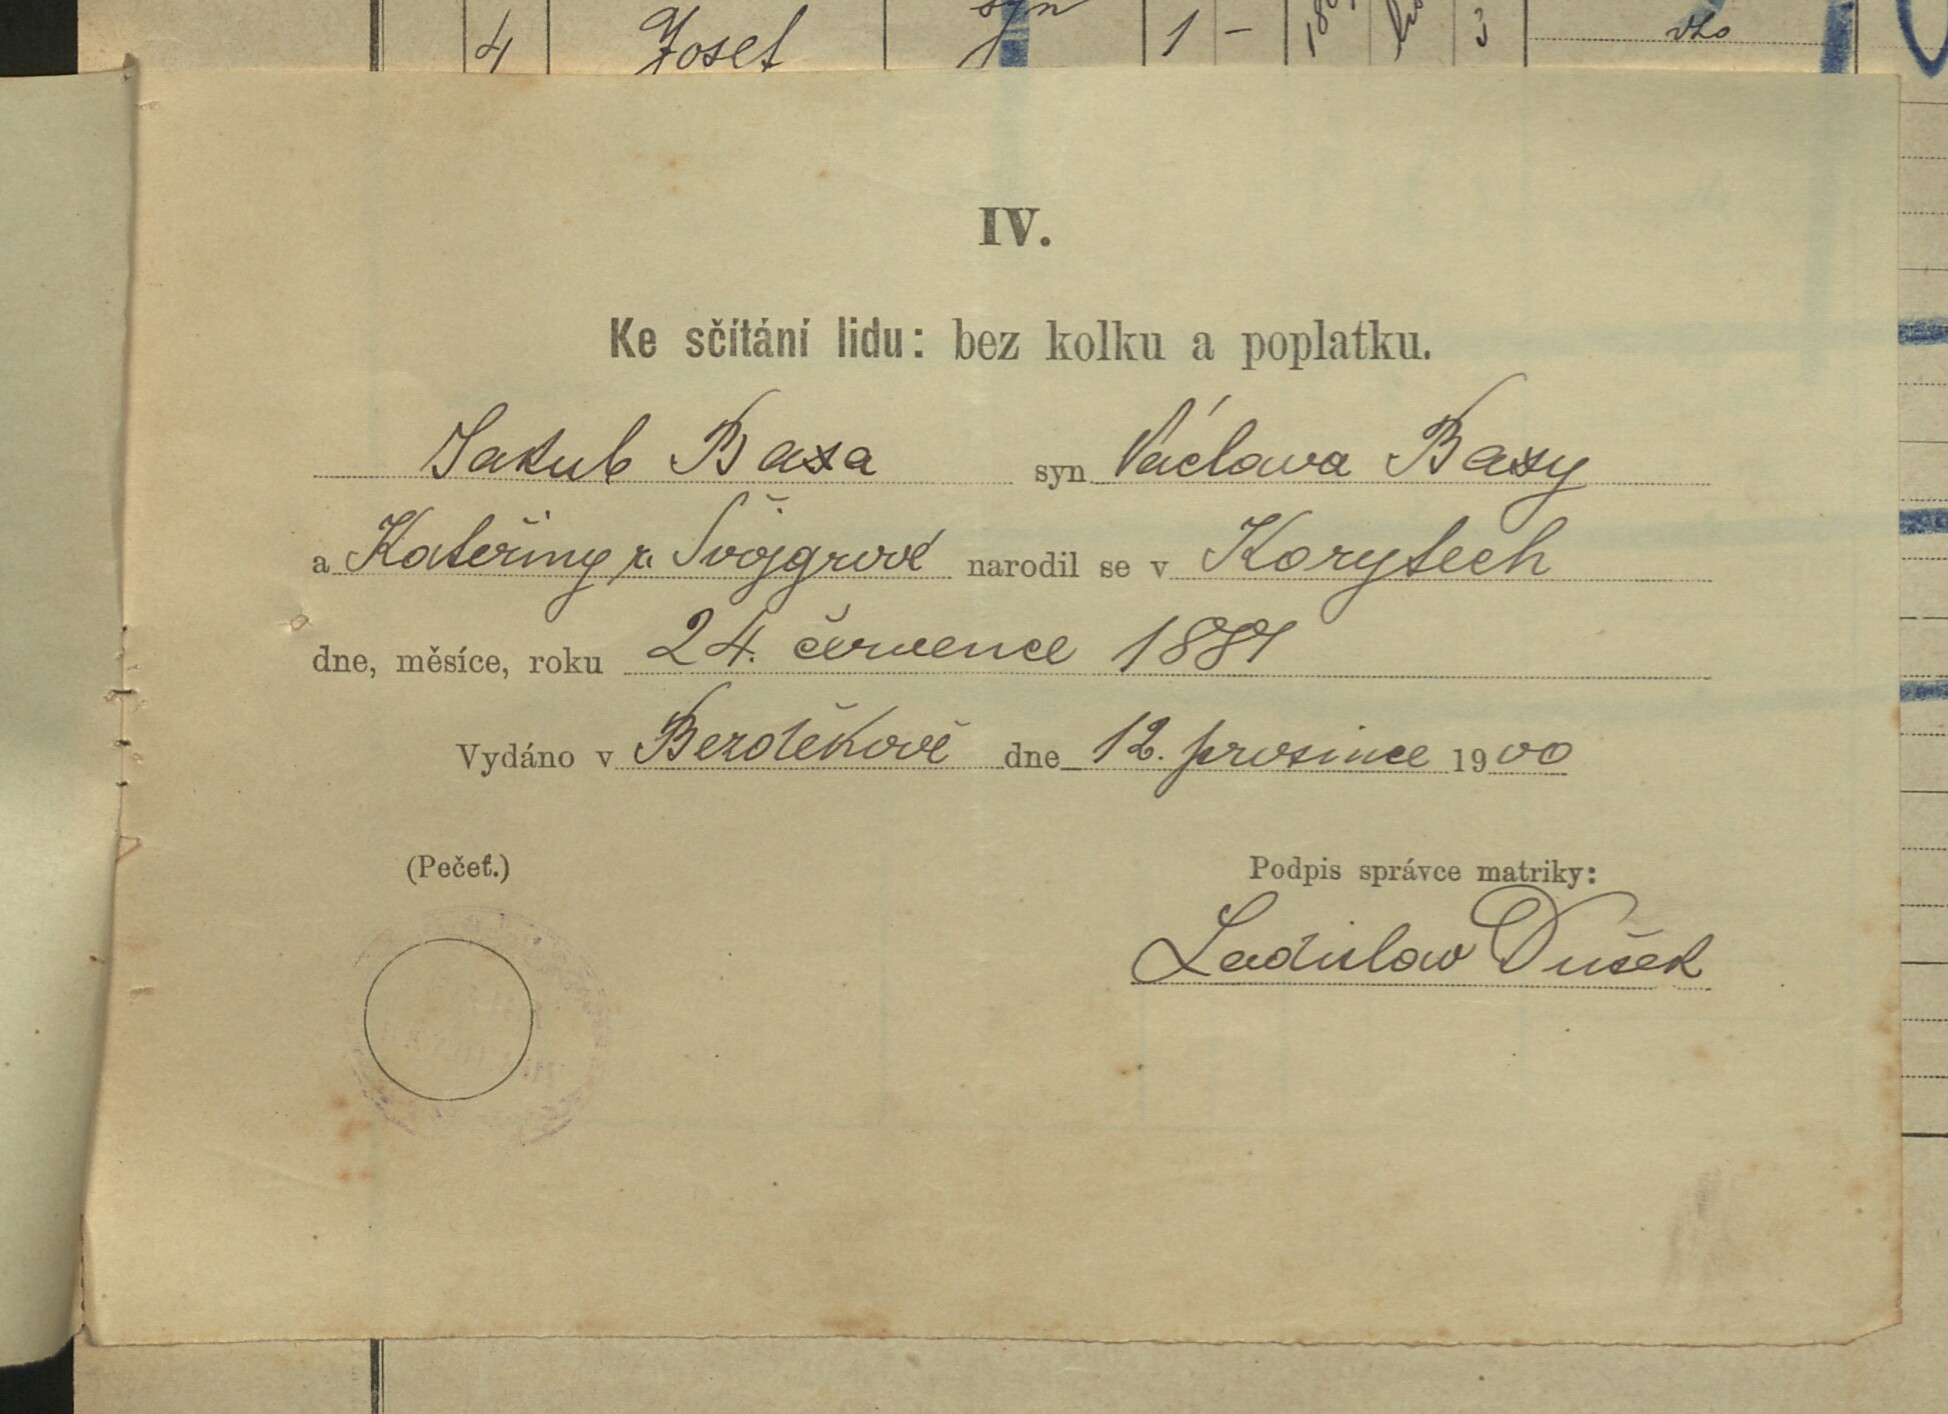 4 Josef syn 1 – 3 dto
IV.
Ke sčítání lidu: bez kolku a poplatku.
Jakub Baxa syn Václava Baxy
a Kateřiny r. Švojgrové narodil se v Korytech
dne, měsíce, roku 24. července 1881
Vydáno v Bezděkově dne 12. prosince 1900
(Pečeť.) Podpis správce matriky:
Ladislav Dušek